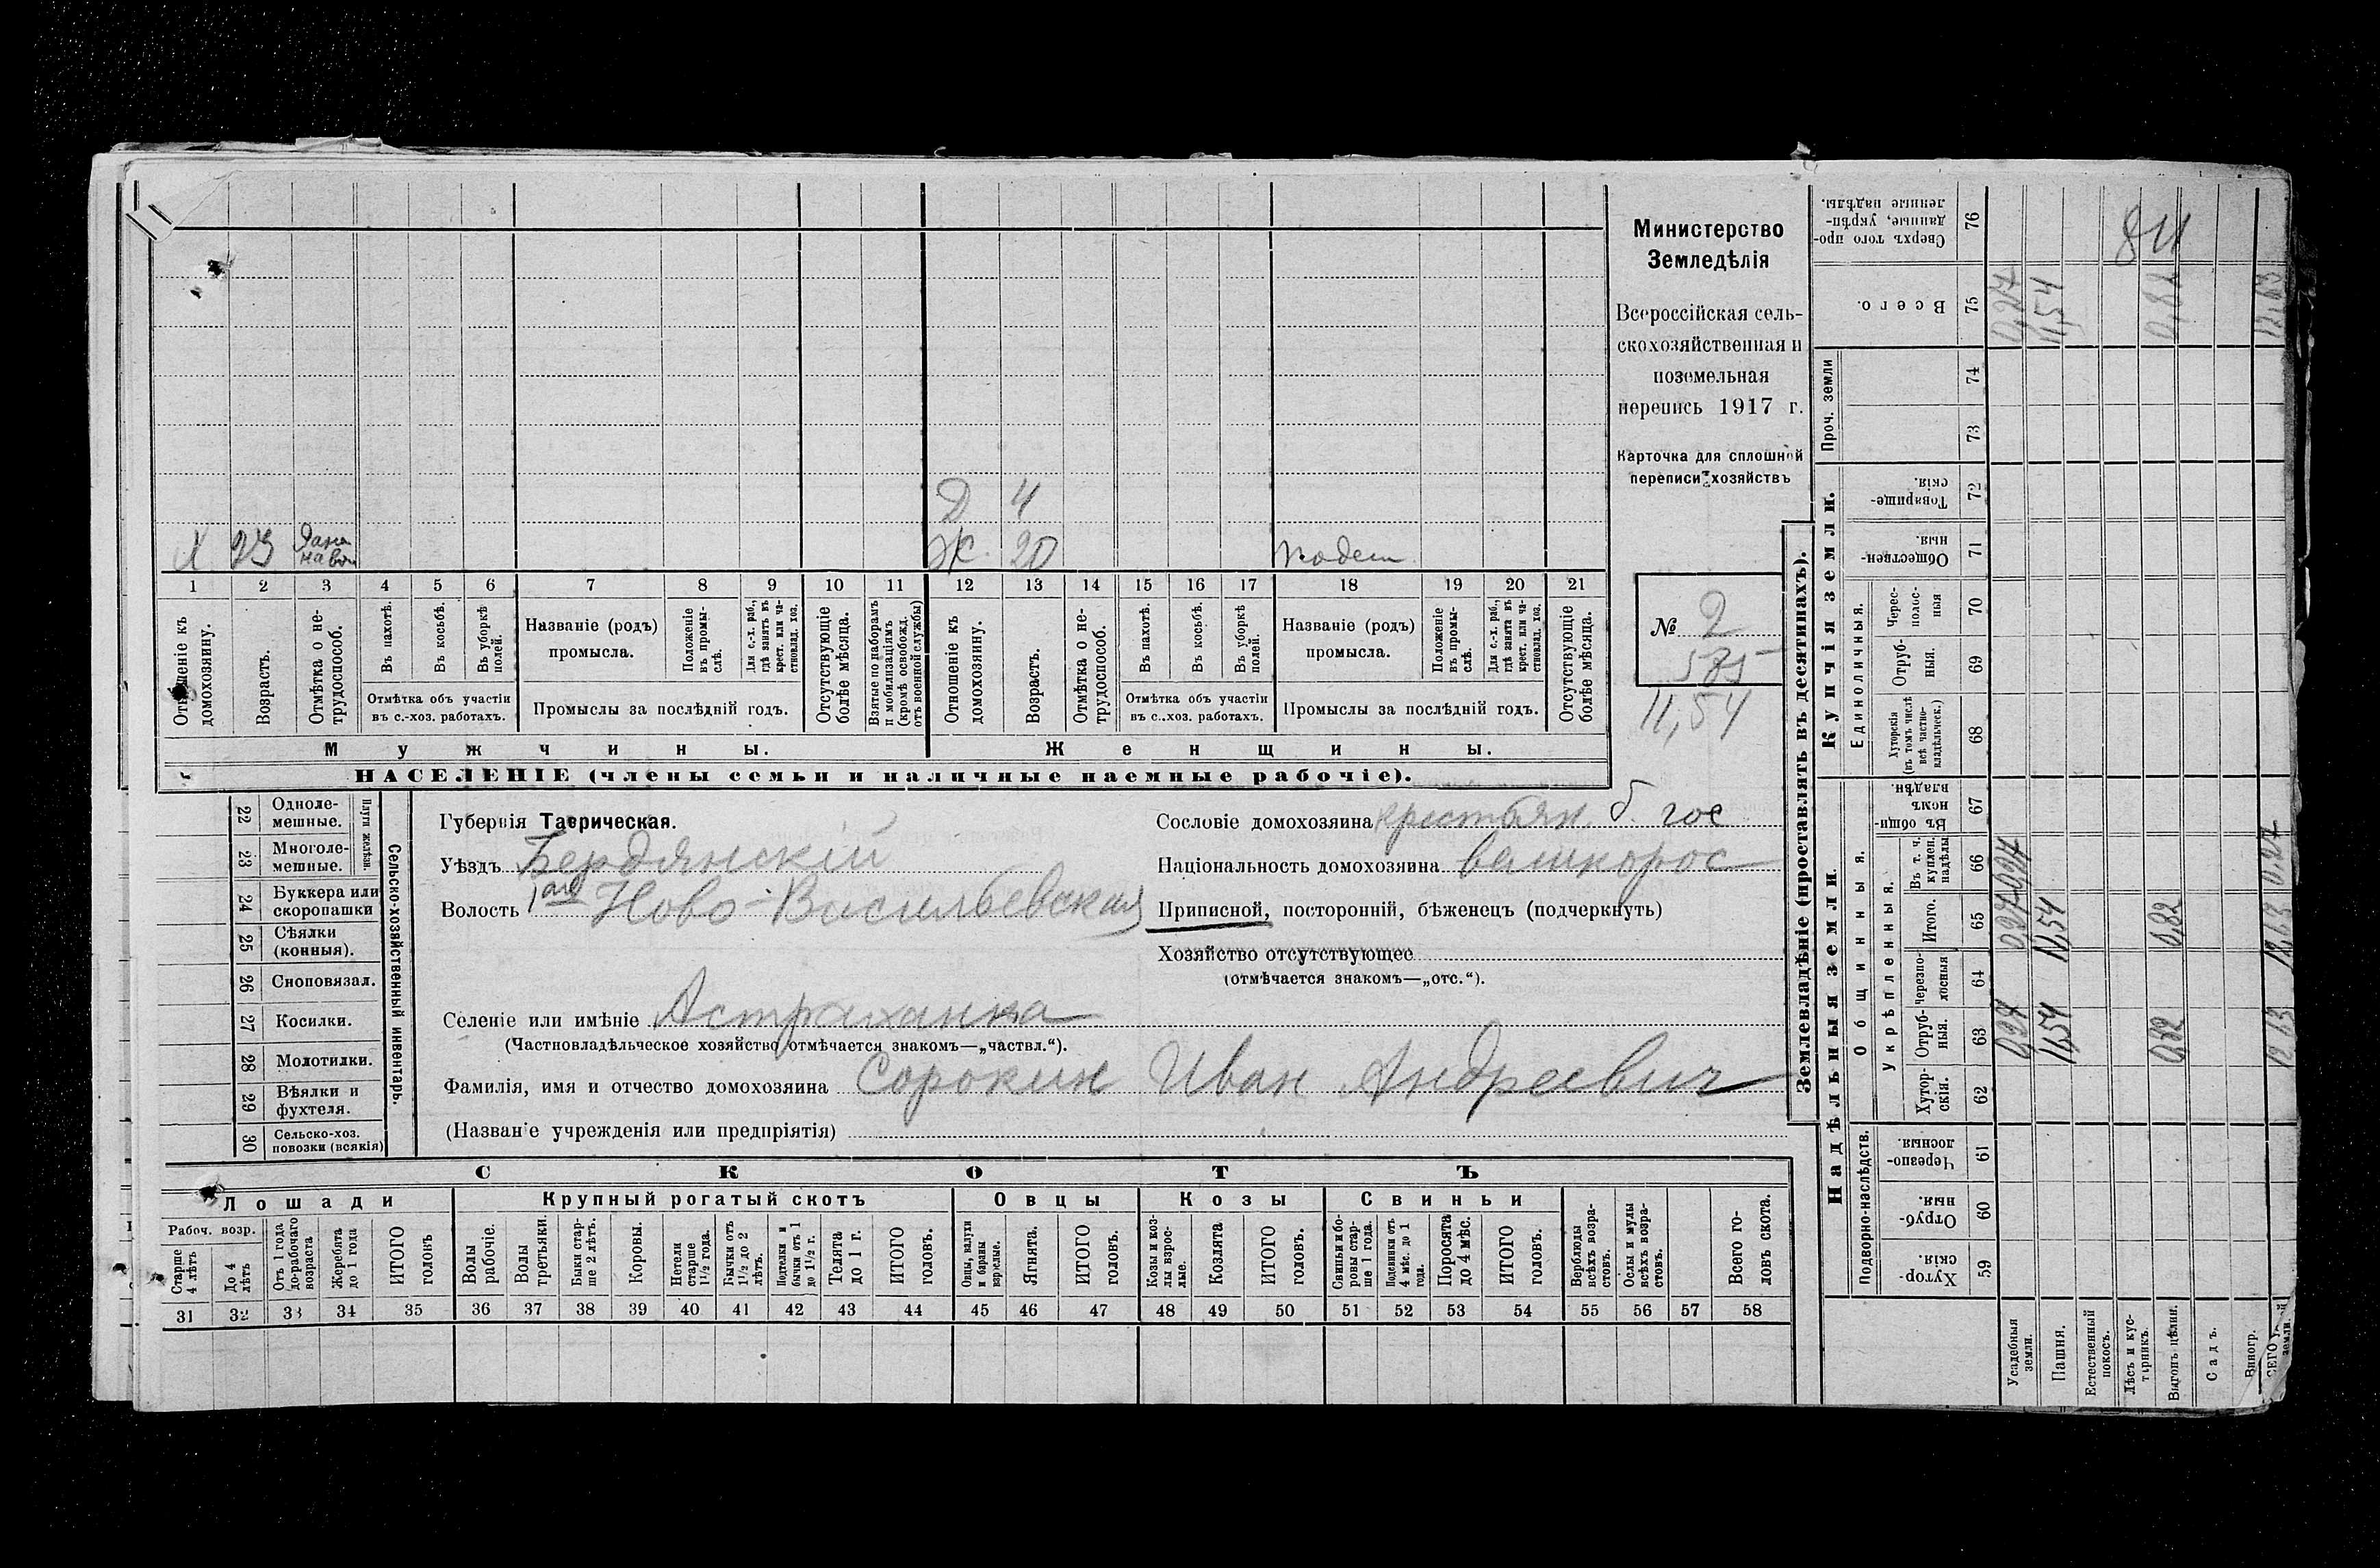 Д 4
Х 23
Ж 20
1 2 3 4 5 6 7 8 9 10 11 12 13 14 15 16 17 18 19 20 21
Отношеніе къ домохозяину.
Возрастъ.
Отмѣтка о не-
трудоспособ.
Въ пахотѣ.
Въ косьбѣ.
Въ уборкѣ
полей.
Отмѣтка объ участіи
въ с.-хоз. работахъ.
Названіе (родъ)
промысла.
Положеніе
въ промы-
слѣ.
Для с.-х. раб.,
гдѣ занятъ въ
крест. или ча-
стновлад. хоз.
Промыслы за послѣдній годъ.
Отсутствующіе
болѣе мѣсяца.
Взятые по наборамъ
и мобилизаціямъ
(кромѣ освобожд.
отъ военной службы)
Отношеніе къ
домохозяину.
Возрастъ.
Отмѣтка о не-
трудоспособ.
Въ пахотѣ.
Въ косьбѣ.
Въ уборкѣ
полей.
Отмѣтка объ участіи
въ с.-хоз. работахъ.
Названіе (родъ)
промысла.
Положеніе
въ промы-
слѣ.
Для с.-х. раб.,
гдѣ занята въ
крест. или ча-
стновлад. хоз.
Промыслы за послѣдній годъ.
Отсутствующіе
болѣе мѣсяца.
Мужчины.
Женщины.
НАСЕЛЕНІЕ (члены семьи и наличные наемные рабочіе).
Министерство
Земледѣлія
Всероссійская сель-
скохозяйственная и
поземельная
перепись 1917 г.
Карточка для сплошной
переписи хозяйствъ
№ 2
585
11,54
22 Одноле-
мешные.
23 Многоле-
мешные.
Плуги желѣзн.
24 Буккера или
скоропашки
25 Сѣялки
(конныя).
26 Сноповязал.
27 Косилки.
28 Молотилки.
29 Вѣялки и
фухтеля.
30 Сельско-хоз.
повозки (всякія)
Сельско-хозяйственный инвентарь.
Губернія Таврическая.
Уѣздъ Бердянскій
Волость 1ая Ново-Васильевская
Селеніе или имѣніе Астраханка
(Частновладѣльческое хозяйство отмѣчается знакомъ—„частвл.“).
Фамилія, имя и отчество домохозяина Сорокин Иван Андреевич
(Названіе учрежденія или предпріятія)
Сословіе домохозяина крестьян. б. гос
Національность домохозяина великорос
Приписной, посторонній, бѣженецъ (подчеркнуть)
Хозяйство отсутствующее
(отмѣчается знакомъ—„отс.“).
СКОТЪ
Лошади
Крупный рогатый скотъ
Овцы
Козы
Свиньи
Рабоч. возр.
Старше
4 лѣтъ
До 4
лѣтъ
Отъ 1 года
до-рабочаго
возраста
Жеребята
до 1 года
ИТОГО
головъ
Волы
рабочіе.
Волы
третьяки.
Быки стар-
ше 2 лѣтъ.
Коровы.
Нетели
старше
1½ года.
Бычки отъ
1½ до 2
лѣтъ.
Подтелки и
бычки отъ 1
до 1½ г.
Телята
до 1 г.
ИТОГО
головъ.
Овцы, валухи
и бараны
взрослые.
Ягнята.
ИТОГО
головъ.
Козы и коз-
лы взрос-
лые.
Козлята
ИТОГО
головъ.
Свиньи и бо-
ровы стар-
ше 1 года.
Подсвинки отъ
4 мѣс. до 1
года.
Поросята
до 4 мѣс.
ИТОГО
головъ.
Верблюды
всѣхъ возра-
стовъ.
Ослы и мулы
всѣхъ возра-
стовъ.
Всего го-
ловъ скота.
31 32 33 34 35 36 37 38 39 40 41 42 43 44 45 46 47 48 49 50 51 52 53 54 55 56 57 58
Землевладѣніе (проставлять въ десятинахъ).
Надѣльныя земли.
Купчія земли.
Подворно-наслѣдств.
Общинныя.
Укрѣпленныя.
Единоличныя.
Проч. земли
Хутор-
скія. 59
Отруб-
ныя. 60
Черезпо-
лосныя. 61
Хутор-
скія. 62
Отруб-
ныя. 63
Черезпо-
лосныя 64
Итого. 65
Въ т. ч.
куплен.
надѣлы 66
Въ общи-
номъ
владѣн. 67
Хуторскія
(въ томъ числѣ
всѣ частно-
владѣльческ.) 68
Отруб-
ныя. 69
Черес-
полос-
ныя 70
Обществен-
ныя. 71
Товарище-
скія. 72
73
74
Всего. 75
Сверхъ того про-
данные, укрѣп-
ленные надѣлы. 76
Усадебныя
земли. 0,27 0,27 0,27 0,27
Пашня. 11,54 11,54 11,54
Естественный
покосъ.
Лѣсъ и кус-
тарникъ.
Выгонъ цѣлин. 0,82 0,82 0,82
Садъ.
Виногр.
12,63 12,63 0,27 12,63